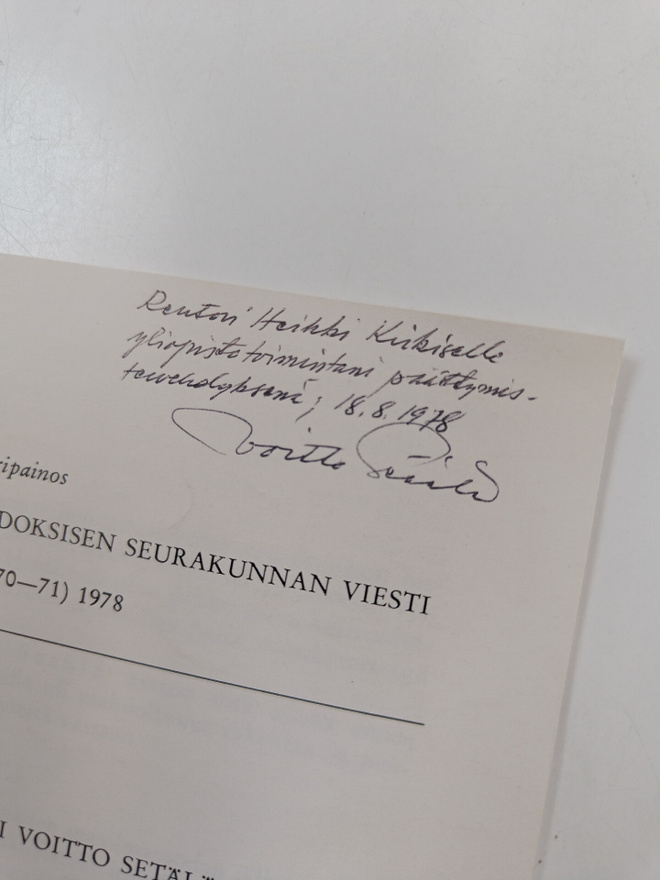 Rehtori Heikki Kirkiselle
yliopistotoimintani päättymis-
tervehdykseni, 18.8.1978
Voitto Setälä
ripainos
DOKSISEN SEURAKUNNAN VIESTI
70—71) 1978
I VOITTO SETÄLÄ